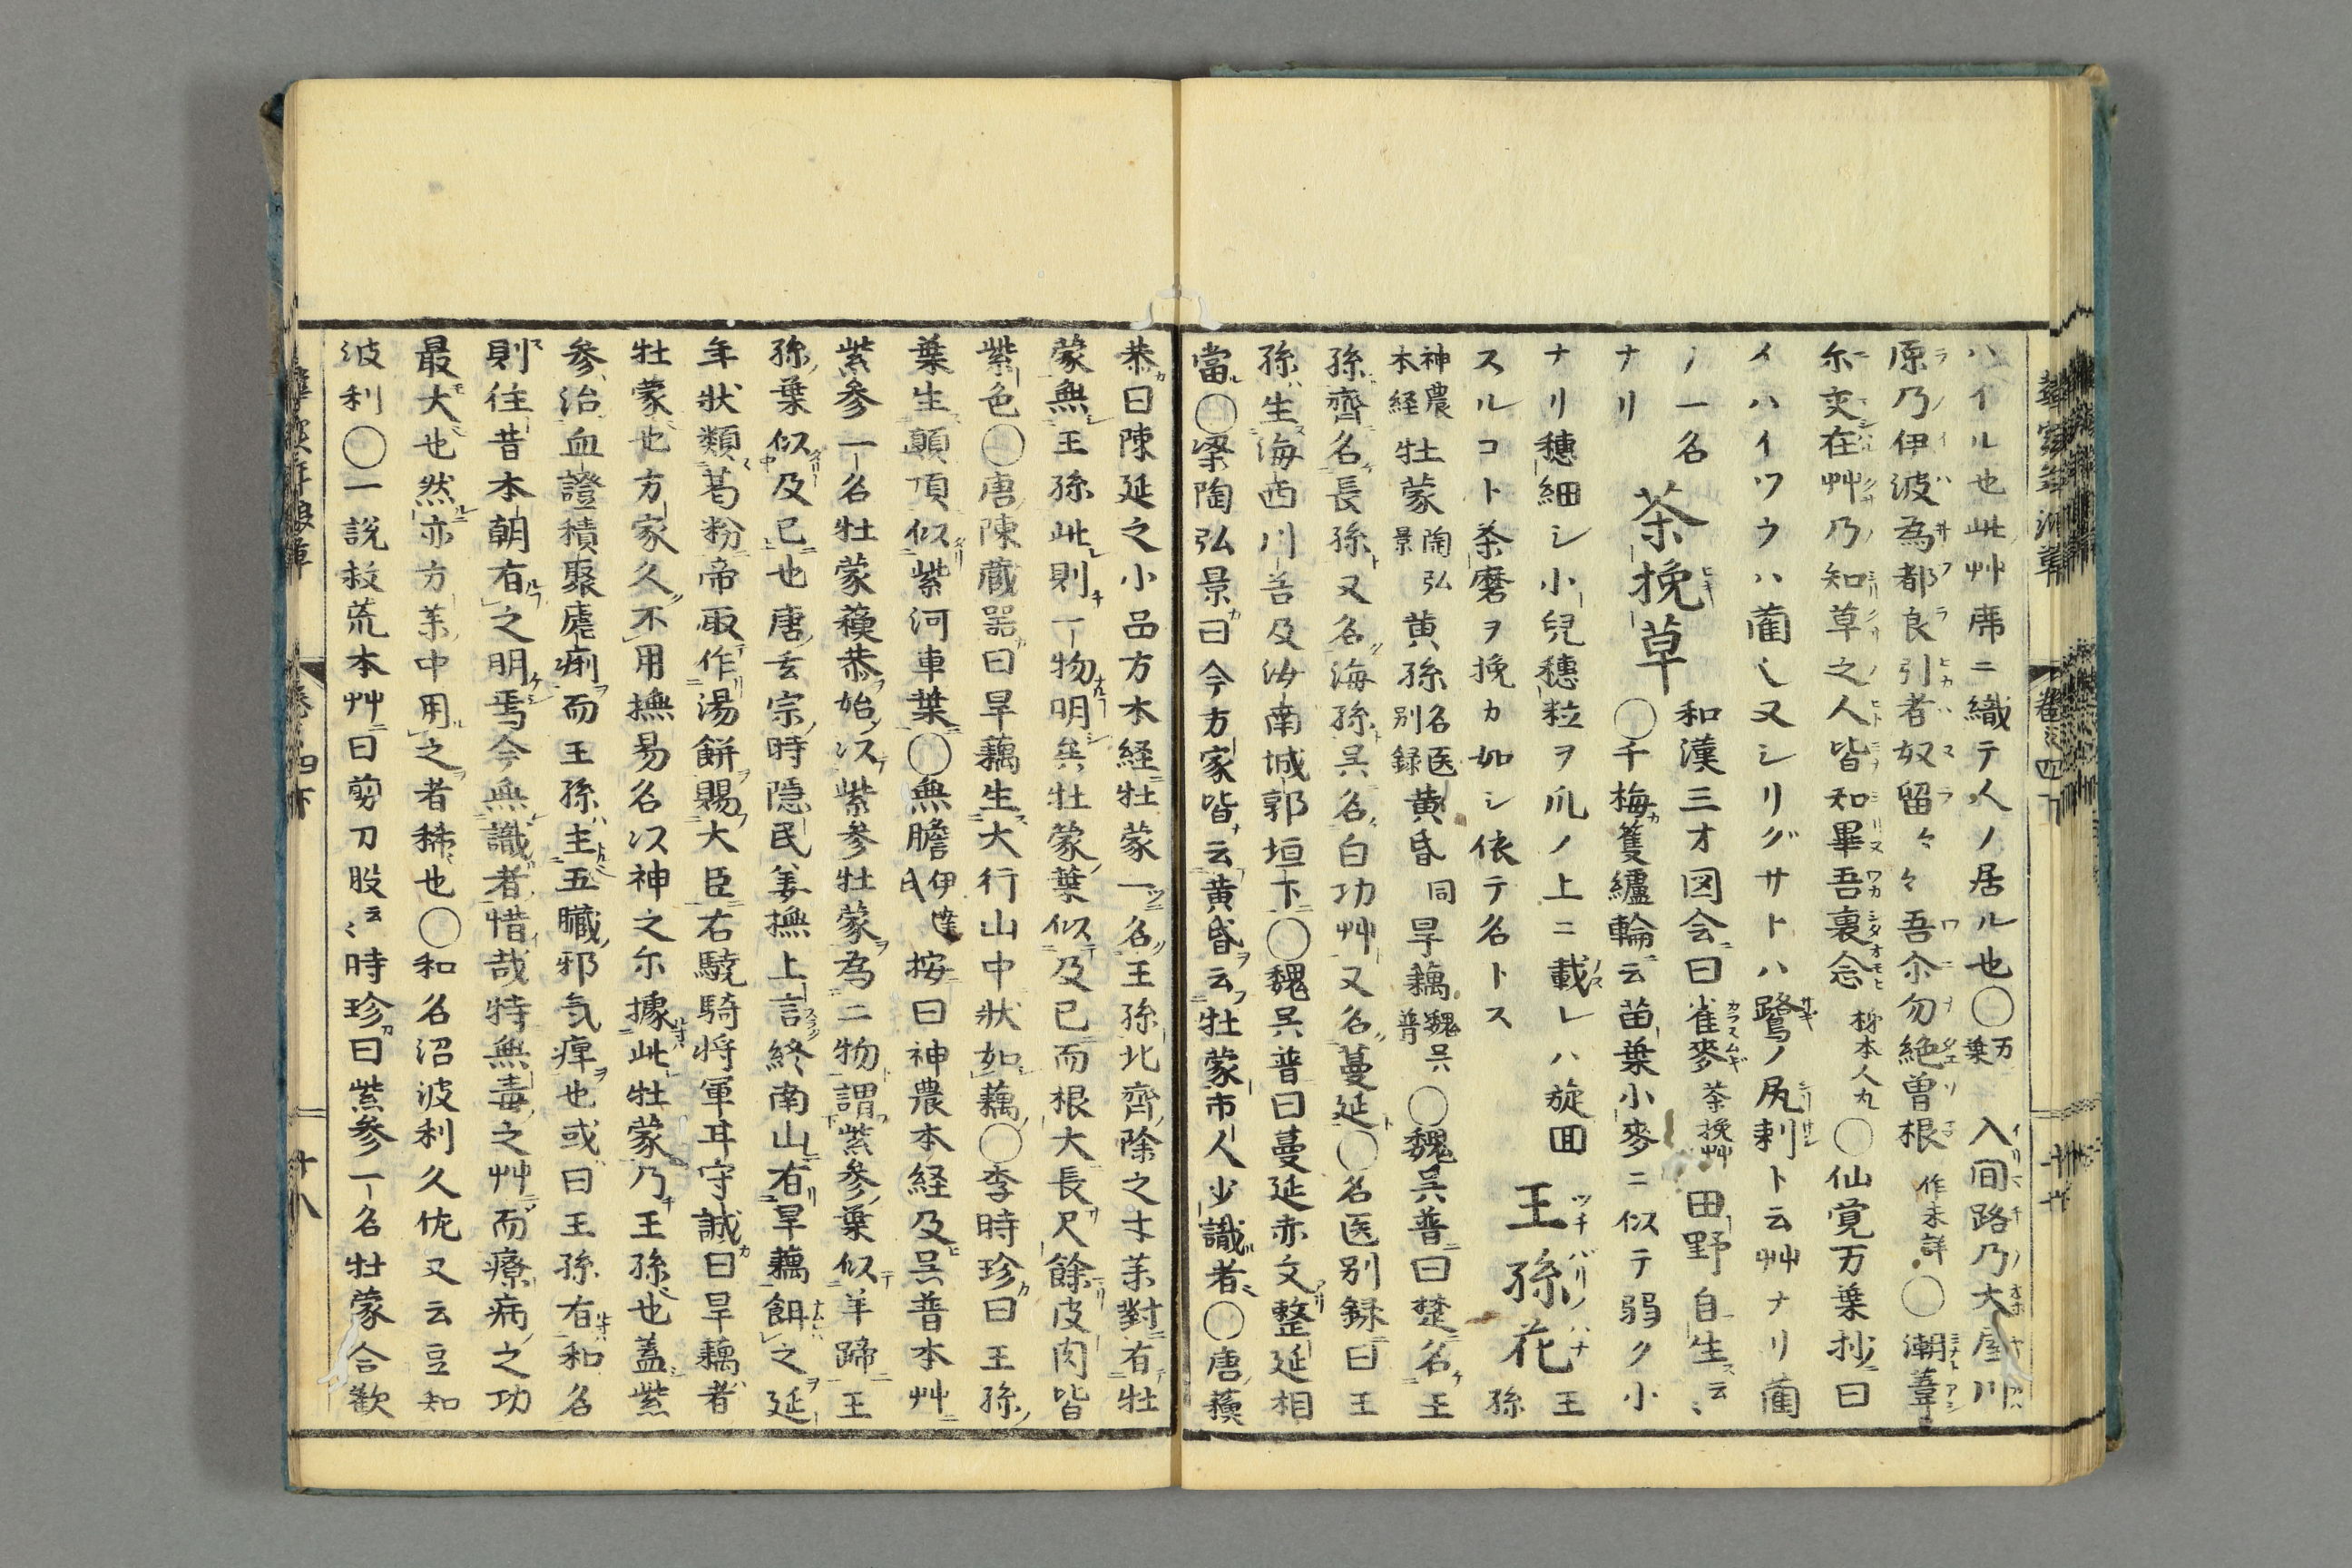 ハイル也此艸席ニ織テ人ノ居ル也〇万葉 入間路乃大屋川
原乃伊波為都良引者奴留々々吾尓勿絶曽根 作未詳〇潮葦
尓交在艸乃知草之人皆知畢吾裏念 柿本人丸〇仙覚万葉抄曰
イハイツウハ藺也又シリグサトハ鷺ノ尻刺ト云艸ナリ藺
ノ一名 茶挽草 和漢三才図会曰雀麥 茶挽艸 田野自生云〻
ナリ 〇千梅篗纑輪云苗葉小麥ニ似テ弱ク小
ナリ穗細シ小兒穗粒ヲ爪ノ上ニ載レハ旋囬 王孫花 王
スルコト茶磨ヲ挽カ如シ依テ名トス 孫
神農本経 牡蒙 陶弘景 黄孫 名医别録 黄昏 同 旱藕 魏呉普 〇魏呉普曰楚名王
孫齊名長孫又名海孫呉名白功艸又名蔓延〇名医别録曰王
孫生海西川谷及汝南城郭垣下〇魏呉普曰蔓延赤文整延相
當〇梁陶弘景曰今方家皆云黄昏云牡蒙市人少識者〇唐蘓
恭曰陳延之小品方本経牡蒙一名王孫北齊除之才薬對有牡
蒙無王孫此則一物明矣牡蒙葉似及已而根大長尺餘皮肉皆
紫色〇唐陳蔵器曰旱藕生大行山中狀如藕〇李時珍曰王孫
葉生顛頂似紫河車葉〇無膽 伊達氏 按曰神農本経及呉普本艸
紫参一名牡蒙蘓恭始以紫参牡蒙為二物謂紫参葉似羊蹄王
孫葉似及已也唐玄宗時隠民姜撫上言終南山有旱藕餌之延
年狀類葛粉帝取作湯餅賜大臣右驍騎将軍甘守誠曰旱藕者
牡蒙也方家久不用撫易名以神之尓據此牡蒙乃王孫也蓋紫
参治血證積聚瘧痢而王孫主五臓邪気痺也或曰王孫有和名
則往昔本朝有之明焉今無識者惜哉特無毒之艸而療病之功
最大也然亦方薬中用之者稀也〇和名沼波利久佐又云豆知
波利〇一說救荒本艸曰剪刀股云〻時珍曰紫参一名牡蒙合歡
巻之四下
巻四下 十八